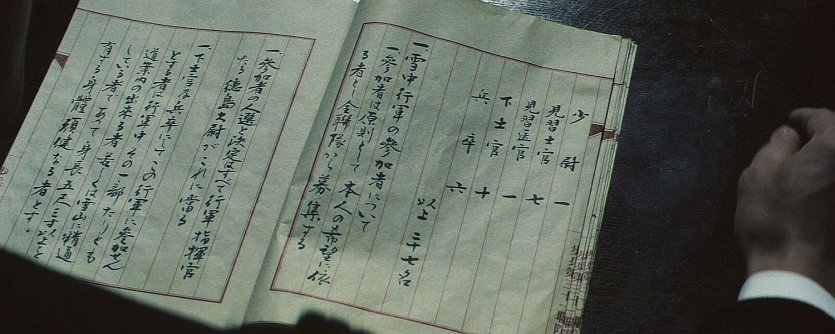 少尉 一
見習士官 七
見習医官 一
下士官 十
兵卒 六
以上 二十七名
一、雪中行軍の參加者について
一、參加者は原則として本人の希望に依
る者とし全聯隊から募集する
一、參加者の人選と決定はすべて行軍指揮官
たる徳島大尉がこれに當る
一、下士官及兵卒にしてこの行軍に參加せん
とする者は行軍中その一部たりとも
道案内の出來る者若くは雪山に精通
している者であって身長五尺三寸以上を
有する身體頑健なる者とす。